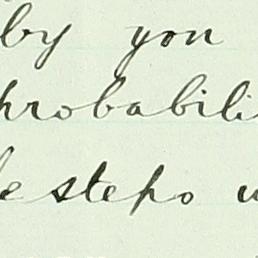 by you
probabili
le steps u